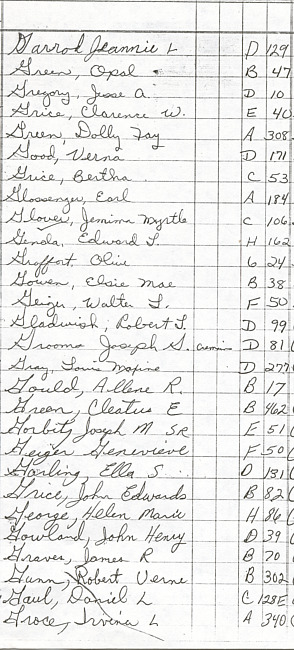 Garrod Jeannie L D 129
Green, Opal B 47
Gregory, Jesse A. D 10
Grice, Clarence W. E 40
Green, Dolly Fay A 308
Good, Verna D 171
Grice, Bertha C 53
Glossenger, Earl A 184
Glover, Jemima Myrtle C 106
Genda, Edward F. H 162
Graffort Olive G 24
Gowen, Elsie Mae B 38
Geiger, Walter F. F 50
Gladwish, Robert F. D 99
Grooms Joseph S. D 81
Gray, Maxine D 277
Gould, Allene R. B 17
Green, Cleatus E B 462
Gorbit, Joseph M SR E 51
Geiger Genevieve F 50
Gosling, Ella S D 131
Grice, John Edwards B 82
George, Helen Marie H 86
Gowland, John Henry D 39
Graves, James R B 70
Gunn, Robert Verne B 302
Gaul, Daniel L C 128E
Groce, Irvina L A 340